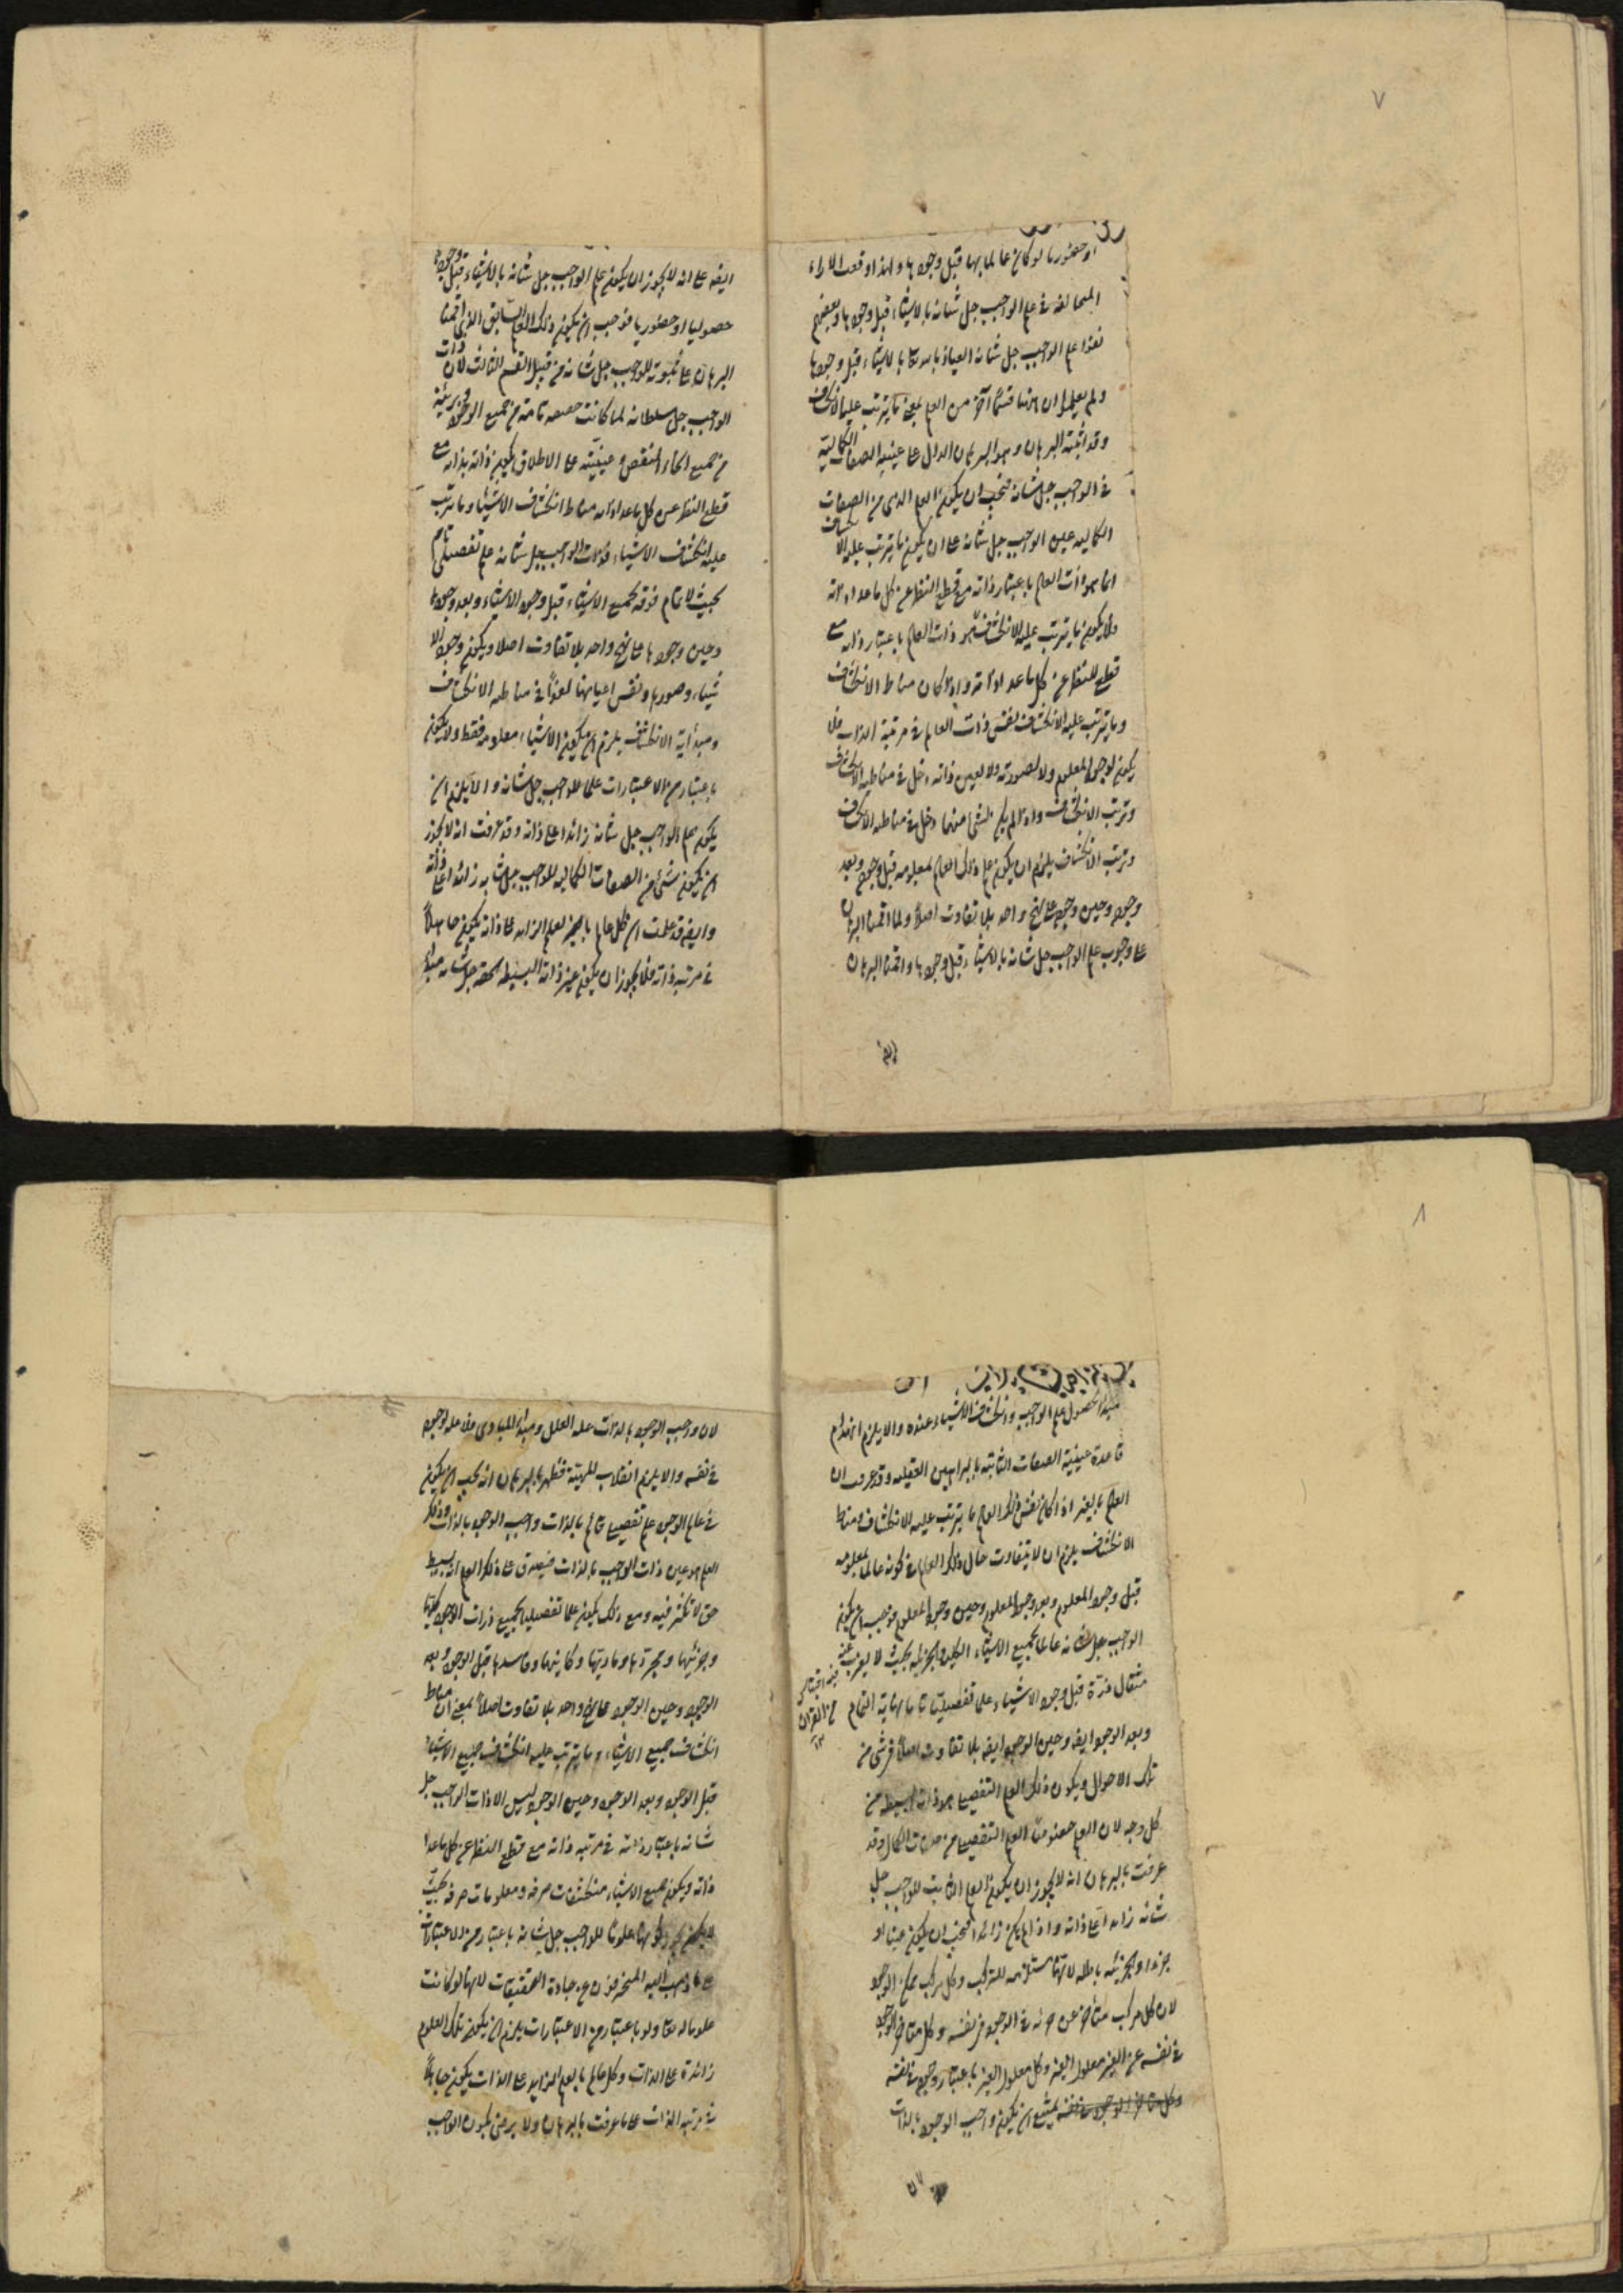 ٧
او حضوريا لو كان عالما بها قبل وجودها ولهذا وقعت الاراء
المخالفة في علم الواجب جل شانه بالاشياء قبل وجودها وبعضهم
نفوا علم الواجب جل شانه العياذ بالله تعا بالاشياء قبل وجودها
ولم يعلموا ان هنا قسما آخر من العلم بمعنى ما يترتب عليه الانكشاف
وقد اثبته البرهان وهو البرهان الدال على عينية الصفات الكمالية
في الواجب جل شانه فيجب ان يكون العلم الذي من الصفات
الكماليه عين الواجب جل شانه على ان يكون ما يترتب عليه الانكشاف
انما هو ذات العالم باعتبار ذاته مع قطع النظر عن كل ما عدا ذاته
ولما يكون ما يترتب عليه الانكشاف هو ذات العالم باعتبار ذاته مع
قطع النظر عن كل ما عدا ذاته واذا كان مناط الانكشاف
وما يترتب عليه الانكشاف نفس ذات العالم في مرتبة الذات فلا
يكون لوجود المعلوم ولا لصورته ولا لعين ذاته دخل في مناطيه الانكشاف
وترتب الانكشاف واذا لم يكن لشئ منها دخل في مناطيه الانكشاف
وترتب الانكشاف يلزم ان يكون علم ذلك العالم بمعلومه قبل وجوده وبعد
وجوده وحين وجوده على نهج واحد بلا تفاوت اصلاً ولما اقمنا البرهان
على وجوب علم الواجب جل شانه بالاشياء قبل وجودها واقمنا البرهان
ايضا
ايضه على انه لا يجوز ان يكون علم الواجب جل شانه بالاشياء قبل وجودها
حصوليا او حضوريا فوجب ان يكون ذلك العلم السابق الذي اقمنا
البرهان على ثبوته للواجب جل شانه من قبيل القسم الثالث لان ذات
الواجب جل سلطانه لما كانت حقيقه تامة من جميع الوجوه وبريئة
من جميع انحاء النقص وعينيته على الاطلاق يكون ذاته بذاته مع
قطع النظر عن كل ما عدا ذاته مناط انكشاف الاشياء وما يترتب
عليه انكشاف الاشياء فذات الواجب جل شانه علم تفصيلي تام
بحيث لا تمام فوقه لجميع الاشياء قبل وجود الاشياء وبعد وجودها
وحين وجودها على نهج واحد بلا تفاوت اصلا ويكون وجود الا
شياء وصورها ونفس اعيانها لغوا في مناطيه الانكشاف
ومبدأية الانكشاف يلزم ان يكون الاشياء معلومه فقط ولا يكون
باعتبار من الاعتبارات علما للواجب جل شانه والا يلزم ان
يكون علم الواجب جل شانه زائدا على ذاته وقد عرفت انه لا يجوز
ان يكون شئ من الصفات الكماليه للواجب جل شانه زائدا على ذاته
وايضه قد علمت ان كل عالم بالغير بعلم الزايد على ذاته يكون جاهلاً
في مرتبه ذاته فلا يجوز ان يكون غير ذاته البسيطه الحقه جل شانه مبدأ
٨
مبدا لحصول علم الواجب وانكشاف الاشياء عنده والا يلزم انهدام
قاعدة عينية الصفات الثابته بالبراهين العقليه وقد عرفت ان
العلم بالغير اذا كان نفس ذلك العالم ما يترتب عليه الانكشاف ومناط
الانكشاف يلزم ان لا يتفاوت حال ذلك العالم في كونه عالما بمعلومه
قبل وجود المعلوم وبعد وجود المعلوم وحين وجود المعلوم فوجب ان يكون
الواجب جل شانه عالما بجميع الاشياء الكليه والجزئيه بحيث لا يعزب عنه
مثقال ذرة قبل وجود الاشياء علما تفصيليا تاما نهاية التمام
فيه اقتباس
من القرآن
وبعد الوجود ايضه وحين الوجود ايضه بلا تفاوت اصلاً في شئ من
تلك الاحوال ويكون ذلك العلم التفصيلي هو ذاته البسيطه من
كل وجه لان العلم خصوصا العلم التفصيلي من صفات الكمال وقد
عرفت بالبرهان انه لا يجوز ان يكون العلم الثابت للواجب جل
شانه زايدا على ذاته واذا لم يكن زائدا فيجب ان يكون عينا او
جزءا والجزئيه باطله لانها مستلزمه للتركيب وكل مركب ممكن الوجود
لان كل مركب متأخر عن جزئه في الوجود في نفسه وكل متاخر الوجود
في نفسه عن الغير معلول الغير وكل معلول الغير باعتبار وجوده في نفسه
يمتنع ان يكون واجب الوجود بالذات
لان
لان واجب الوجود بالذات علة العلل ومبدأ المبادي فلا علة لوجوده
في نفسه والا يلزم انقلاب المهية فظهر بالبرهان انه يجب ان يكون
في عالم الوجود علم تفصيلي قائم بالذات واجب الوجود بالذات وذلك
العلم هو عين ذات الواجب بالذات فيصدق على ذلك العلم انه بسيط
حق لا تكثر فيه ومع ذلك يكون علما تفصيليا لجميع ذرات الوجود كليها
وجزئيها ومجردها وماديها وكاينها وفاسدها قبل الوجود وبعد
الوجود وحين الوجود على نهج واحد بلا تفاوت اصلاً بمعنى ان مناط
انكشاف جميع الاشياء وما يترتب عليه انكشاف جميع الاشياء
قبل الوجود وبعد الوجود وحين الوجود ليس الا ذات الواجب جل
شانه باعتبار ذاته في مرتبه ذاته مع قطع النظر عن كل ما عدا
ذاته ويكون جميع الاشياء منكشفات صرفه ومعلومات صرفه بحيث
لا يكون علوما للواجب جل شانه باعتبار من الاعتبارات
على ما ذهب اليه المنحرفون عن جادة التحقيقات لانها لو كانت
علوما له تعا ولو باعتبار من الاعتبارات يلزم ان يكون تلك العلوم
زائدة على الذات وكل عالم بالعلم الزايد على الذات يكون جاهلاً
في مرتبه الذات على ما عرفت بالبرهان ولا يرضى بكون الواجب